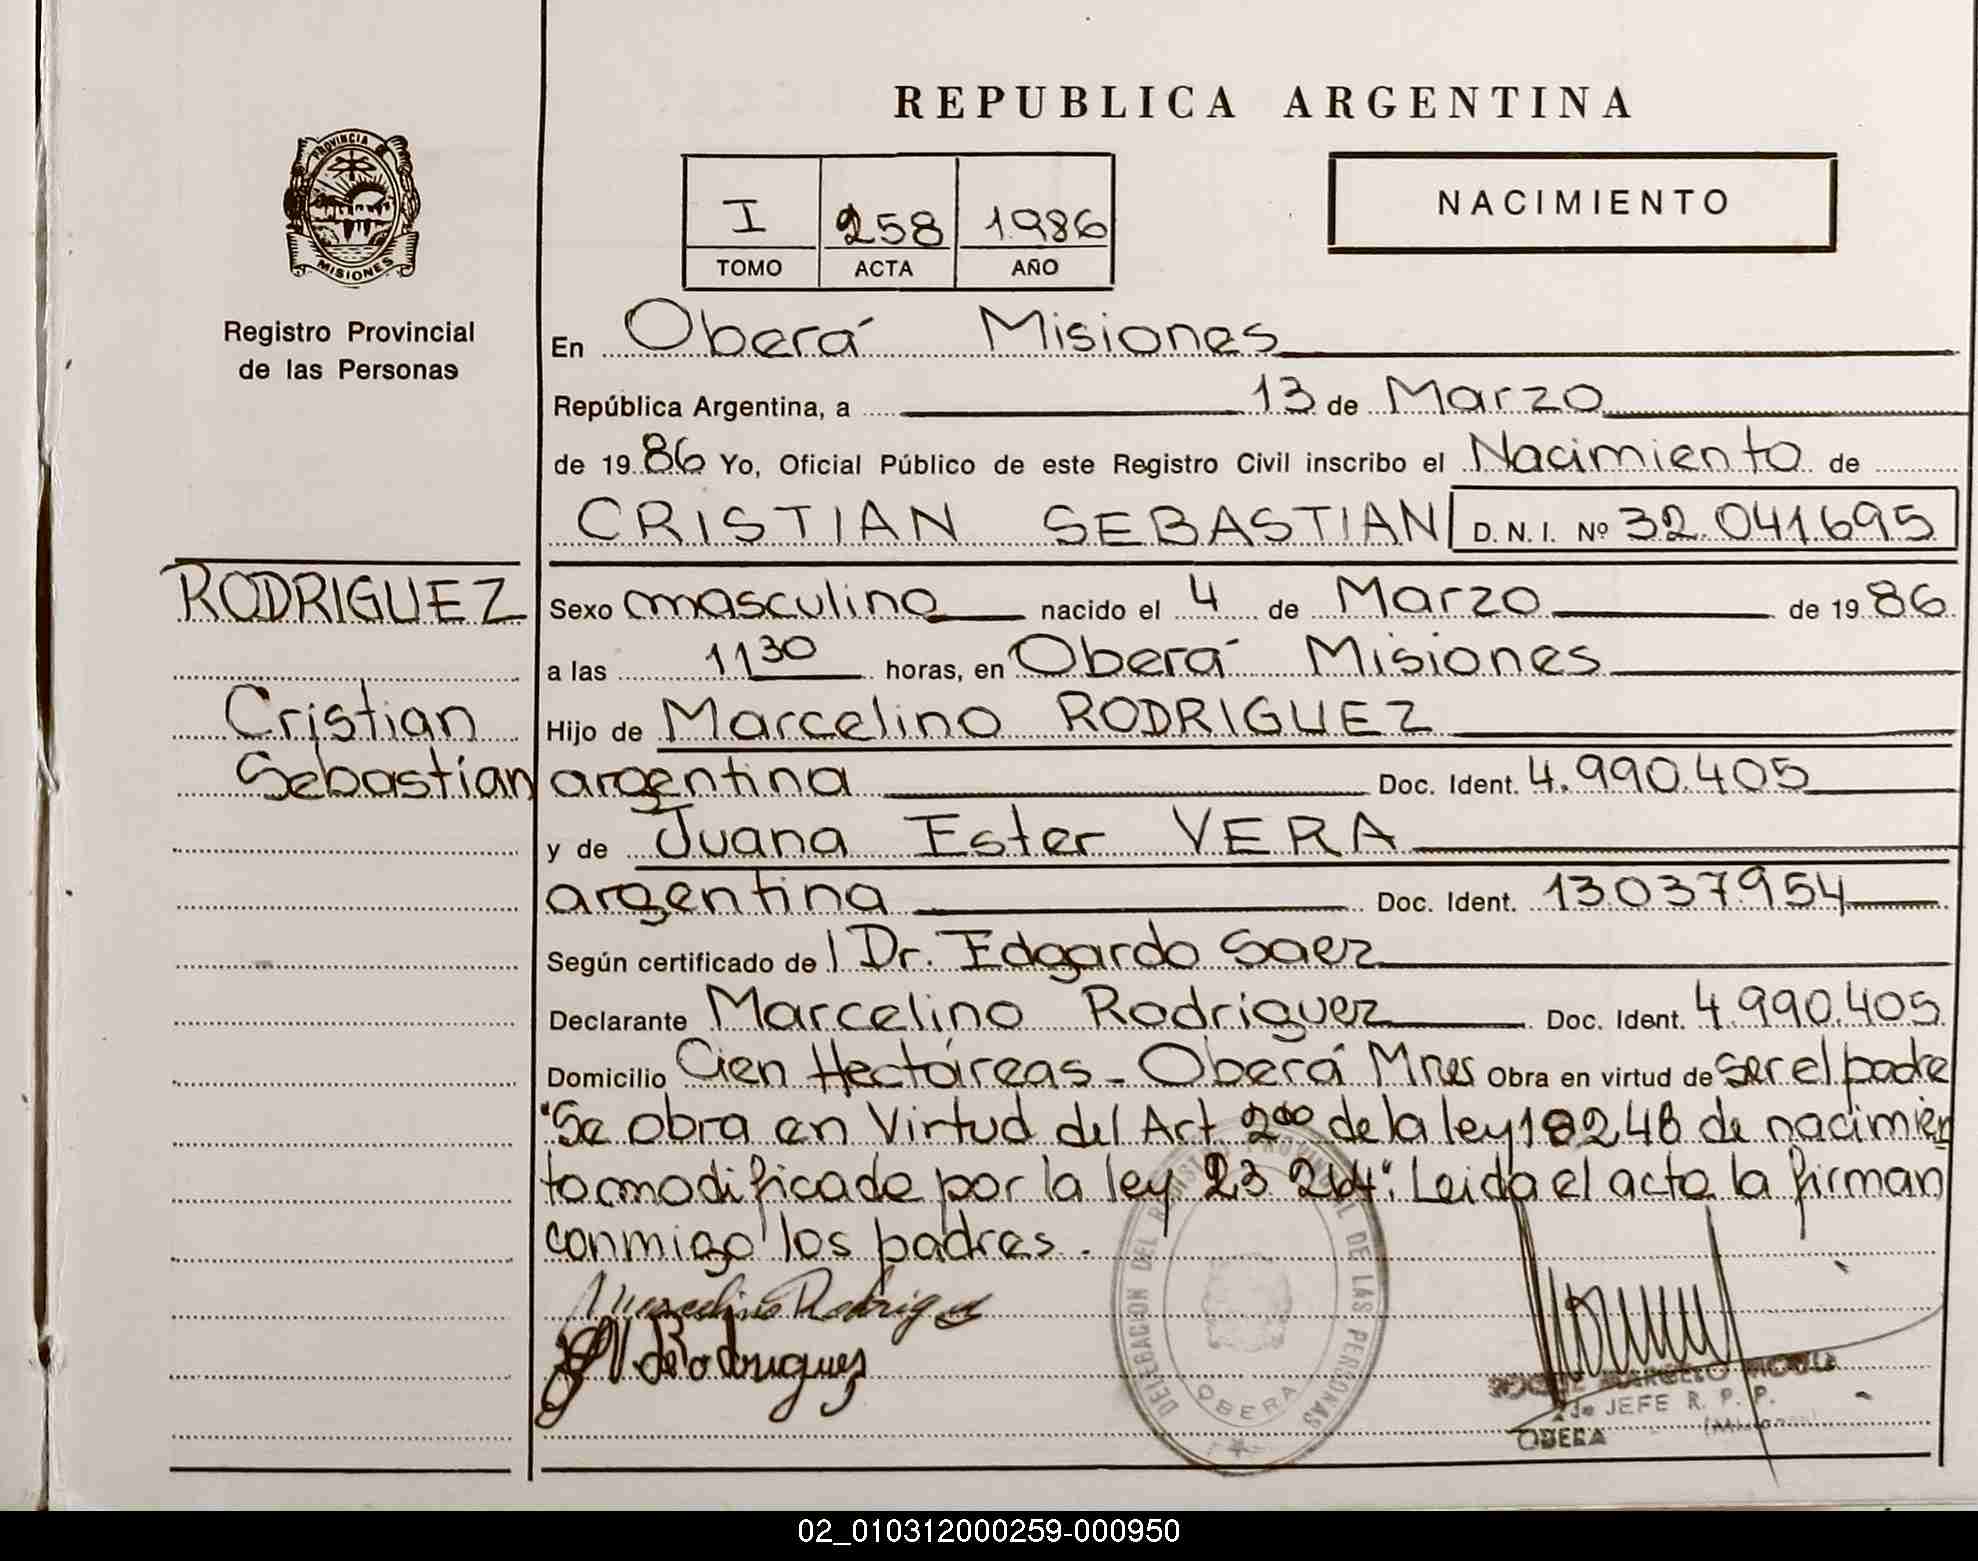 REPUBLICA ARGENTINA
PROVINCIA DE
MISIONES
Registro Provincial
de las Personas
I 258 1986
TOMO ACTA AÑO
NACIMIENTO
En Oberá Misiones
República Argentina, a 13 de Marzo
de 1986 Yo, Oficial Público de este Registro Civil inscribo el Nacimiento de
CRISTIAN SEBASTIAN D.N.I. Nº 32.041.695
RODRIGUEZ
Cristian
Sebastian
Sexo masculino nacido el 4 de Marzo de 1986
a las 11 30 horas, en Oberá Misiones
Hijo de Marcelino RODRIGUEZ
argentina Doc. Ident. 4.990.405
y de Juana Ester VERA
argentina Doc. Ident. 13037954
Según certificado de l Dr. Edgardo Saez
Declarante Marcelino Rodriguez Doc. Ident. 4.990.405
Domicilio Cien Hectáreas - Oberá Mnes Obra en virtud de ser el padre
"Se obra en Virtud del Art. 2do de la ley 18248 de nacimien
to modificado por la ley 23 264". Leida el acta la firman
conmigo los padres.
Marcelino Rodriguez
J E V. de Rodriguez
DELEGACION DEL REGISTRO PROVINCIAL DE LAS PERSONAS
OBERA
ROQUE MARCELO
JEFE R. P. P.
OBERA (Misiones)
02_010312000259-000950